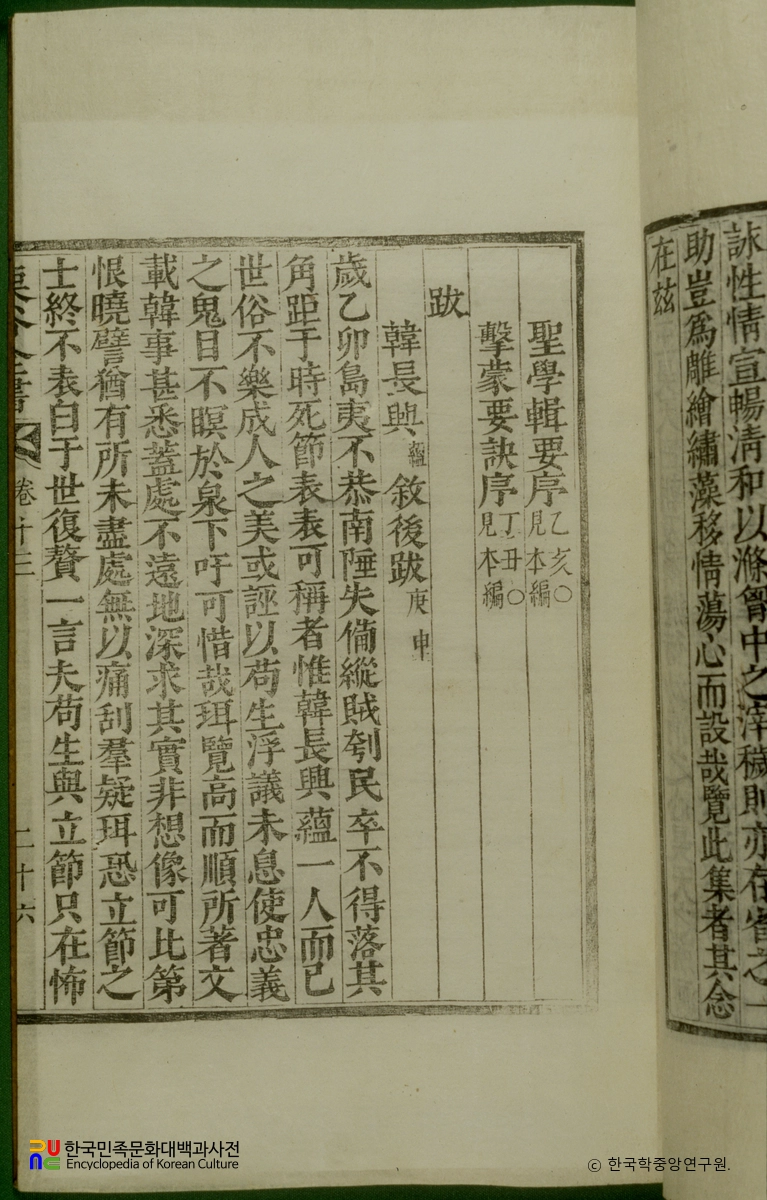 詠性情宣暢淸和以滌胷中之滓穢則亦存省之一
助豈爲雕繪繡藻移情蕩心而設哉覽此集者其念
在玆
聖學輯要序乙亥○見本編
擊蒙要訣序丁丑○見本編
跋
韓長興蘊敘後跋庚申
歲乙卯島夷不恭南陲失備縱賊刳民卒不得落其
角距于時死節表表可稱者惟韓長興蘊一人而已
世俗不樂成人之美或誣以苟生浮議未息使忠義
之鬼目不瞑於泉下吁可惜哉珥覽高而順所著文
載韓事甚悉蓋處不遠地深求其實非想像可比第
恨曉譬猶有所未盡處無以痛刮羣疑珥恐立節之
士終不表白于世復贅一言夫苟生與立節只在怖
栗谷全書 卷十三 二十六
한국민족문화대백과사전
Encyclopedia of Korean Culture
© 한국학중앙연구원.